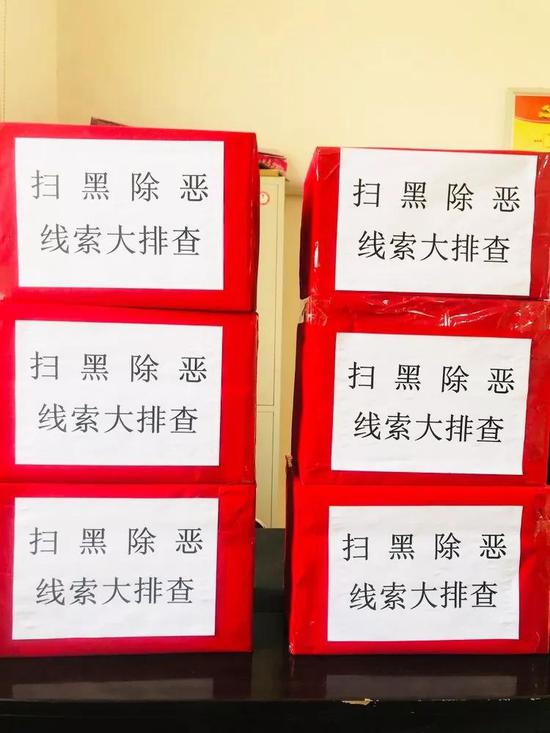 扫黑除恶
线索大排查
扫黑除恶
线索大排查
扫黑除恶
线索大排查
扫黑除恶
线索大排查
扫黑除恶
线索大排查
扫黑除恶
线索大排查